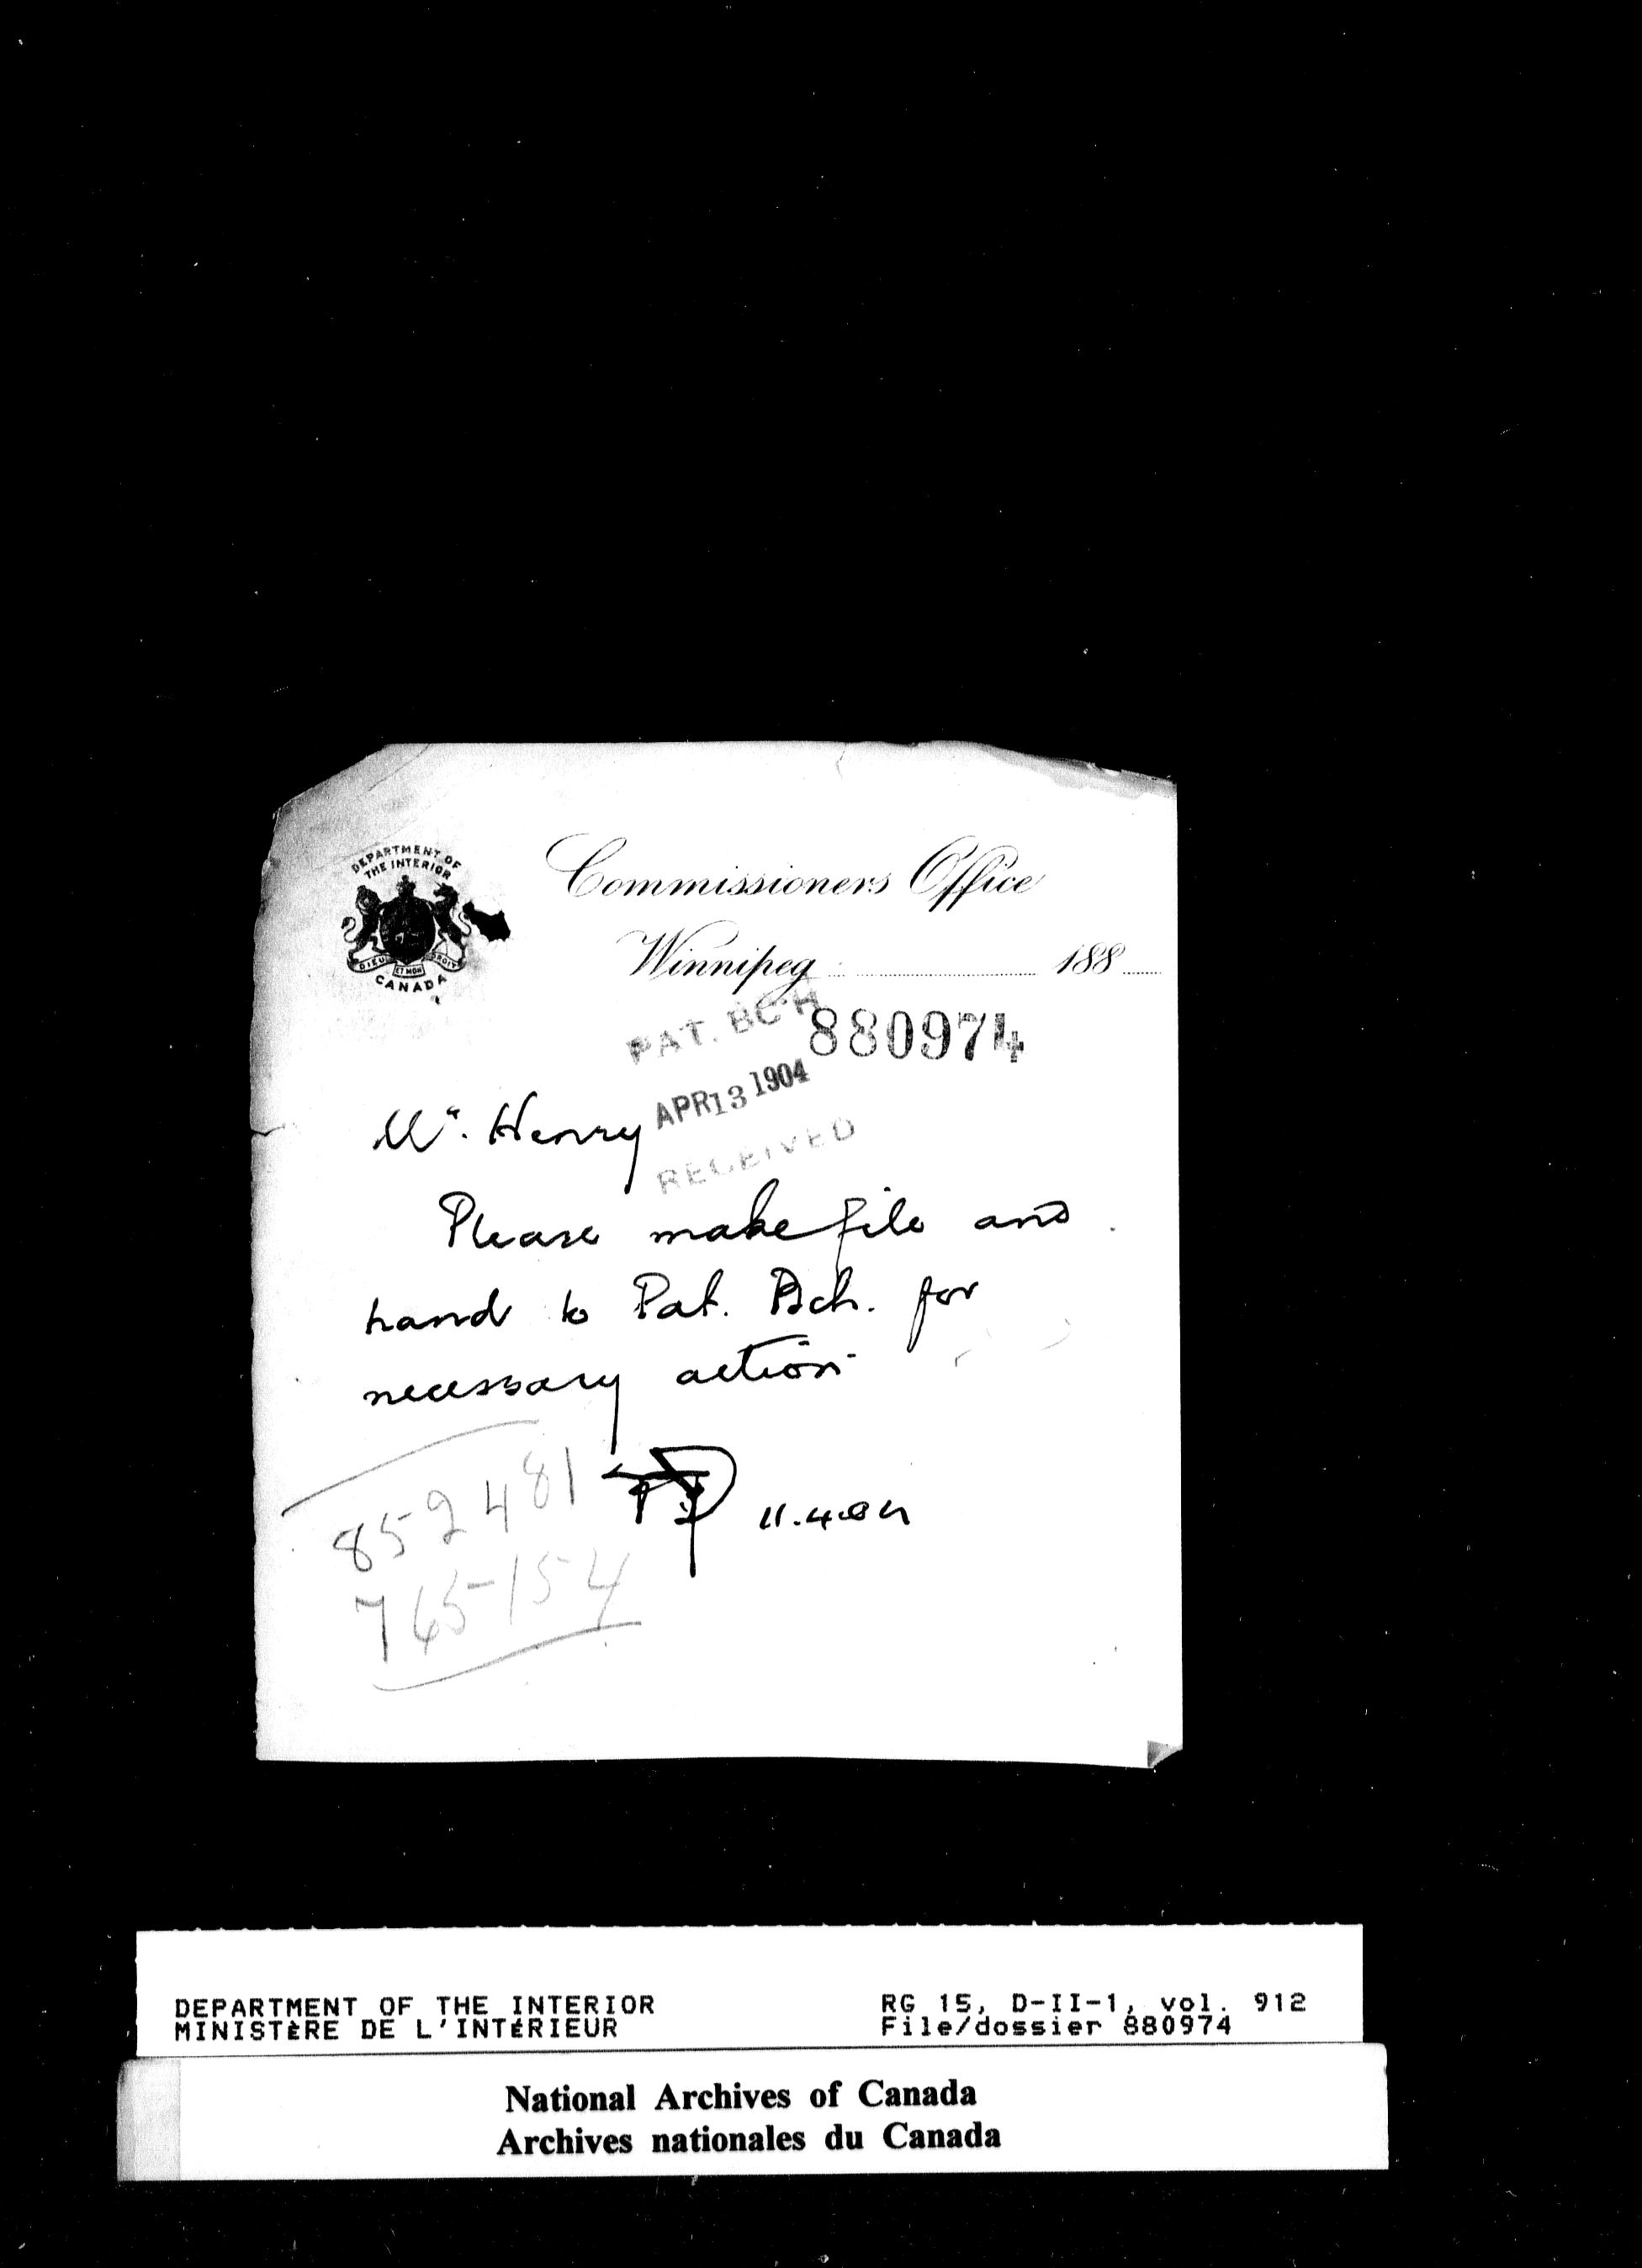 DEPARTMENT OF
THE INTERIOR
DIEU ET MON DROIT
CANADA
Commissioners Office
Winnipeg 188
PAT. BCH
880974
APR 13 1904
RECEIVED
Mr. Henry
Please make file and
hand to Pat. Bch. for
necessary action
11.4.04
852481
765154
DEPARTMENT OF THE INTERIOR
MINISTÈRE DE L'INTÉRIEUR
RG 15, D-II-1, vol. 912
File/dossier 880974
National Archives of Canada
Archives nationales du Canada